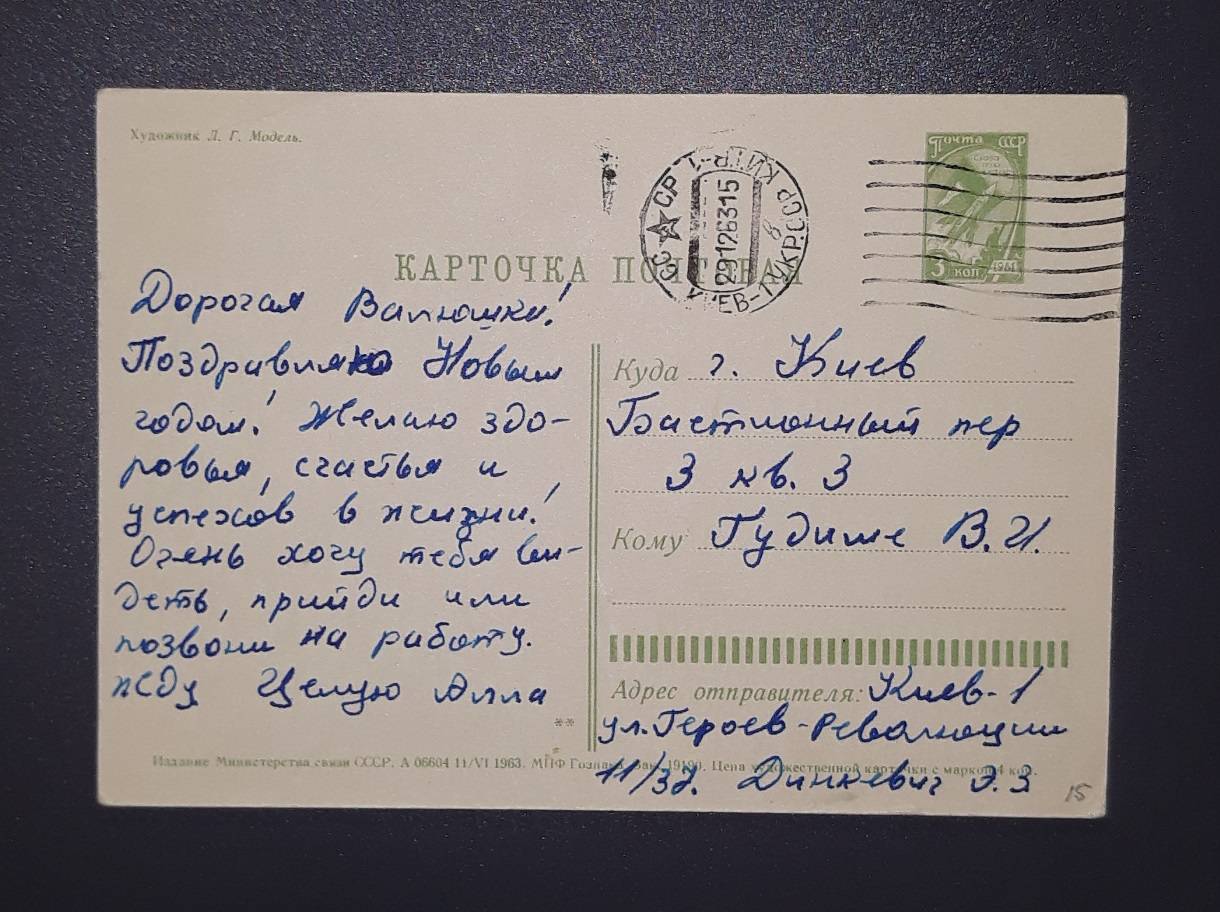 Художник Л. Г. Модель.
Почта СССР
3 коп 1961
КАРТОЧКА ПОЧТОВАЯ
29126315
КИЕВ-1 УКР.ССР
Дорогая Валюшка!
Поздравляю Новым
годом! Желаю здо-
ровья, счастья и
успехов в жизни!
Очень хочу тебя ви-
деть, прийди или
позвони на работу.
жду Целую Алла
**
*
Куда г. Киев
Бастионный пер
3 кв. 3
Кому Гудише В.И.
Адрес отправителя: Киев-1
ул. Героев-Революции
11/37. Динкевич Э.З
Издание Министерства связи СССР. А 06604 11/VI 1963. МПФ Гознака. Зак. 19190. Цена художественной карточки с маркой 4 коп.
15